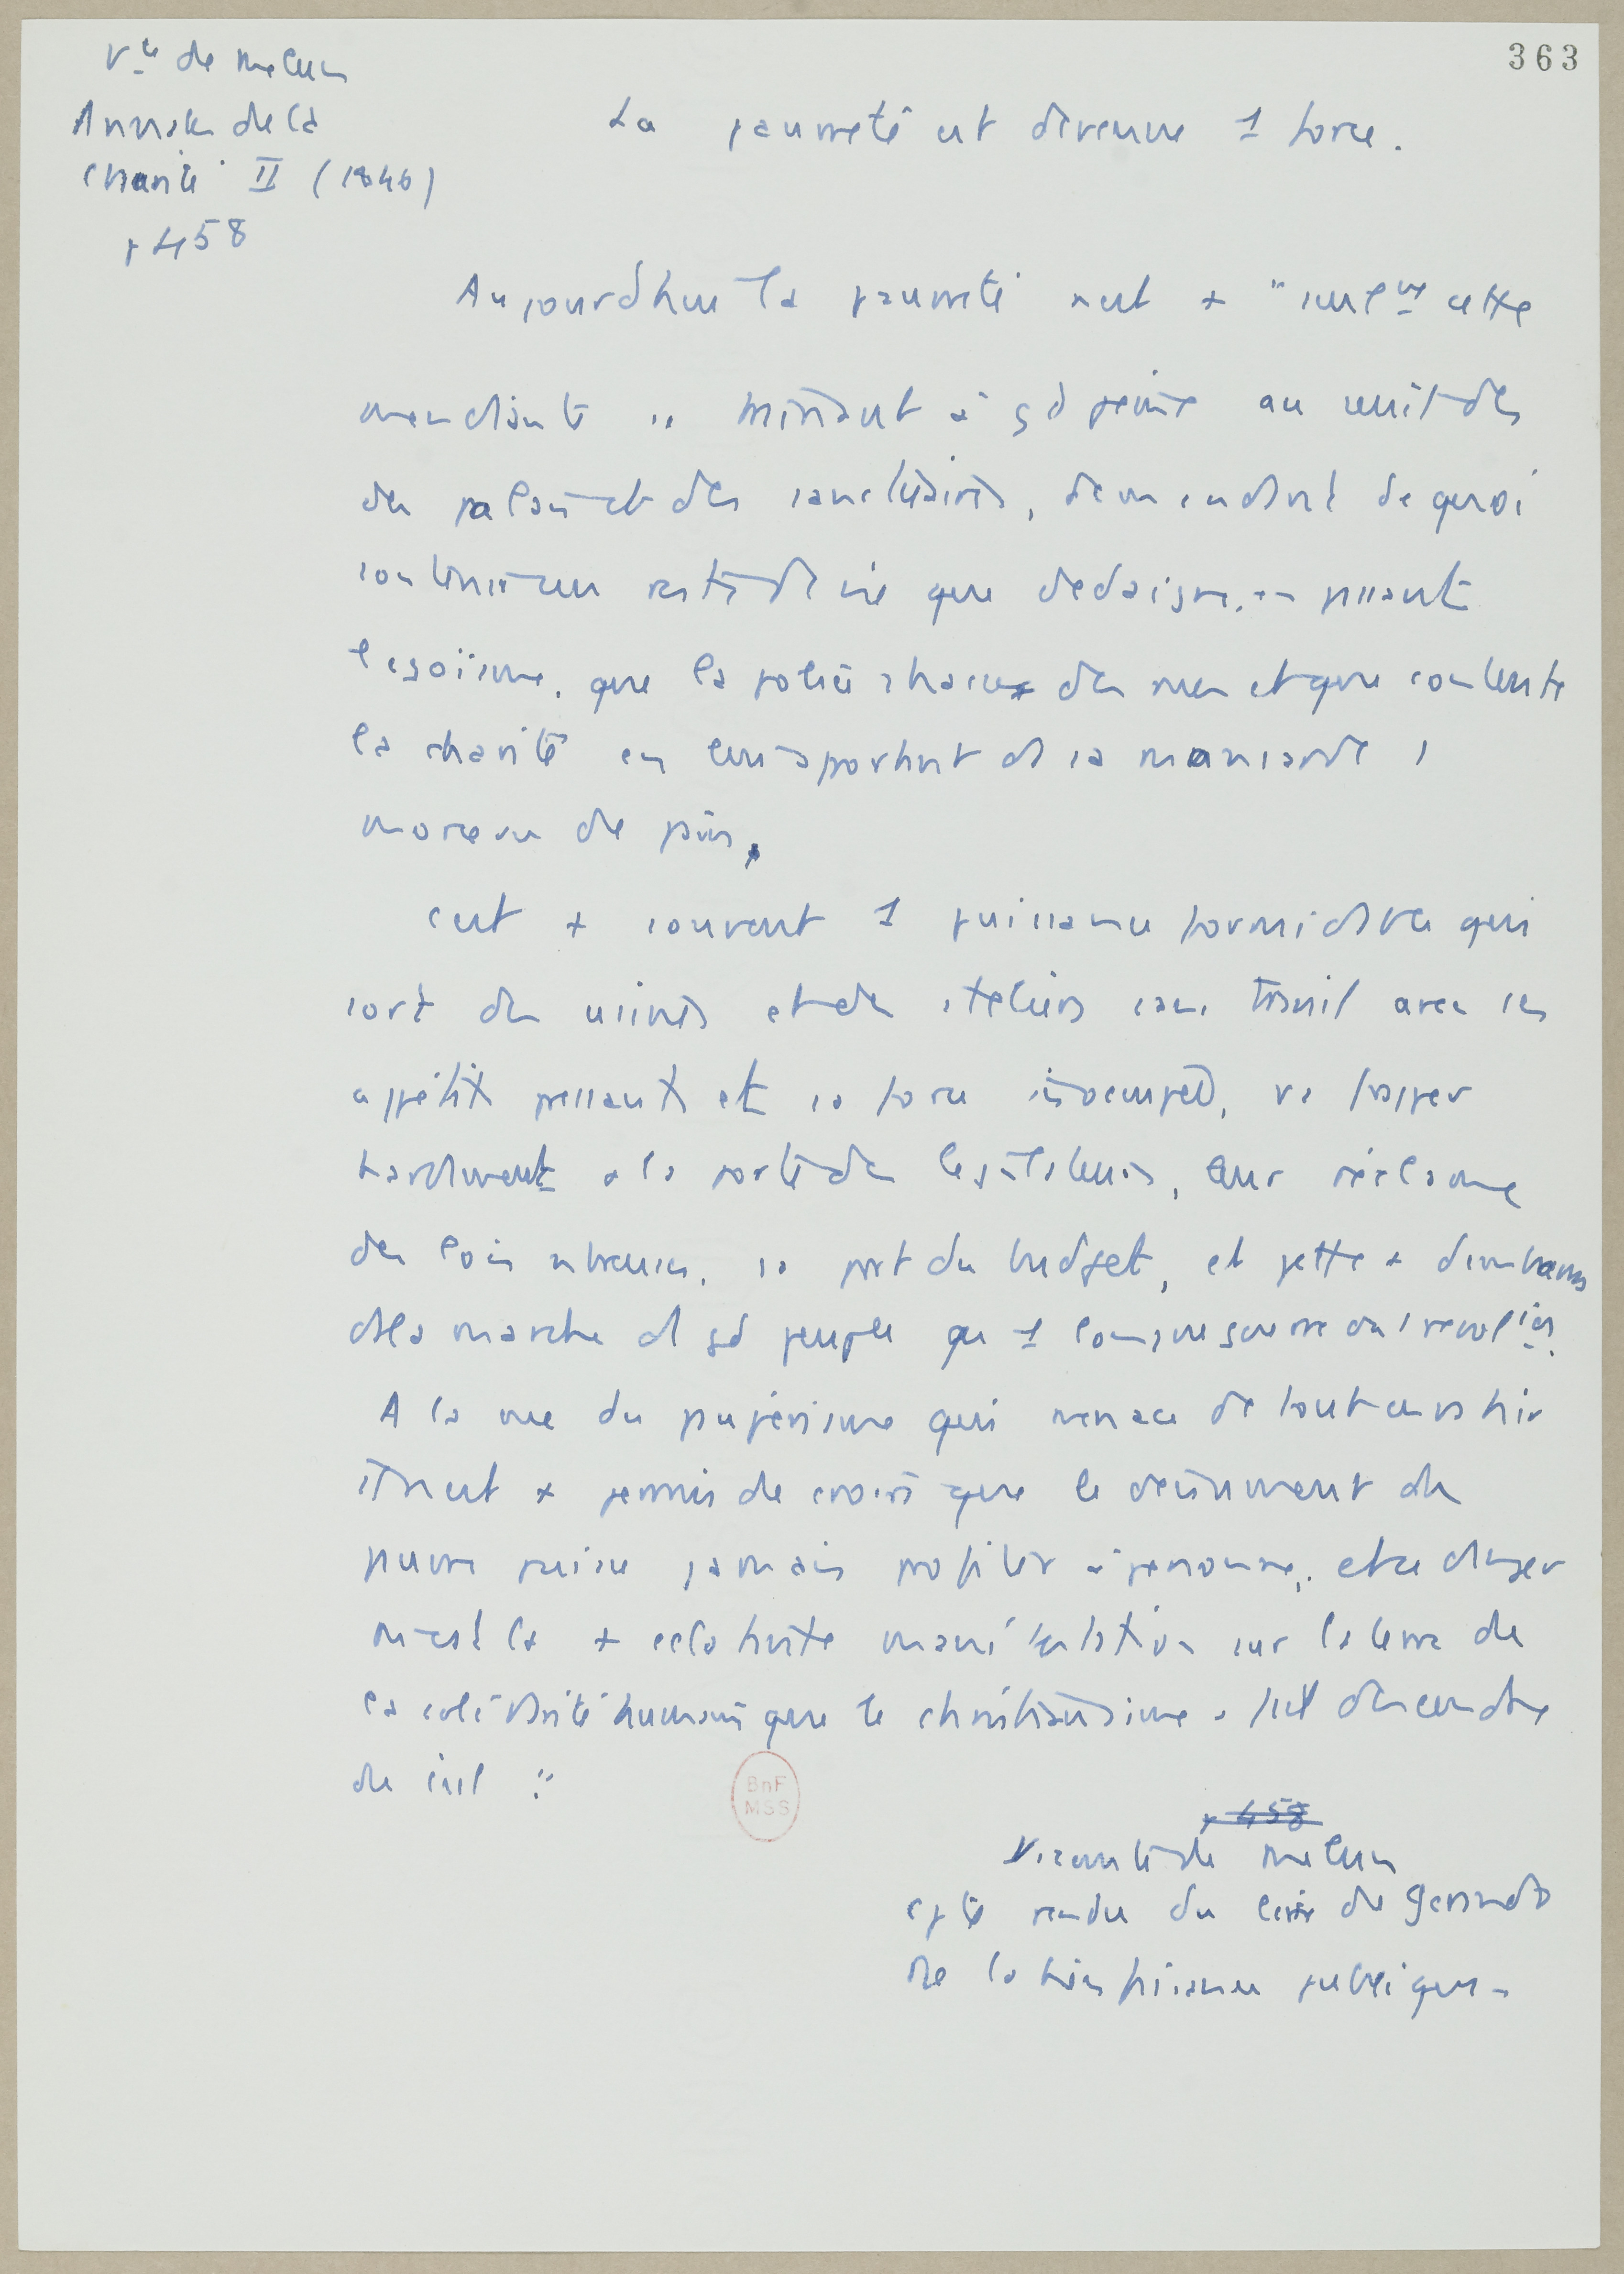 363
Vte de Melun
Annales de la
charité II (1846)
p 458
La pauvreté est devenue 1 force.
Aujourd'hui la pauvreté n'est + "seulemt cette
mendiante " à gd peine au seuil des
des palais et des sanctuaires, demandant de quoi
soutenir un reste de vie que dédaigne en passant
l'égoïsme, que la police chasse des rues et que contente
la charité en lui apportant ds sa mansarde 1
morceau de pain,
c'est + souvent 1 puissance formidable qui
sort des usines et des ateliers sans travail avec ses
appétits pressants et sa force inoccupée, va frapper
hardiment à la porte des législateurs, leur réclame
des lois sa part du budget, et jette + d'embarras
ds la marche d'1 gd peuple qu'1 longue guerre ou 1 révolion.
A la vue du paupérisme qui menace de tout envahir
il n'est + permis de croire que le dénuement du
pauvre puisse jamais profiter à personne, et ce danger
n'est la + éclatante manifestation sur la terre de
la solidarité humaine que le christianisme a fait descendre
du ciel "
p 458
Vicomte de Melun
cpte rendu du livre de Gerando
De la bienfaisance publique -
BnF
MSS